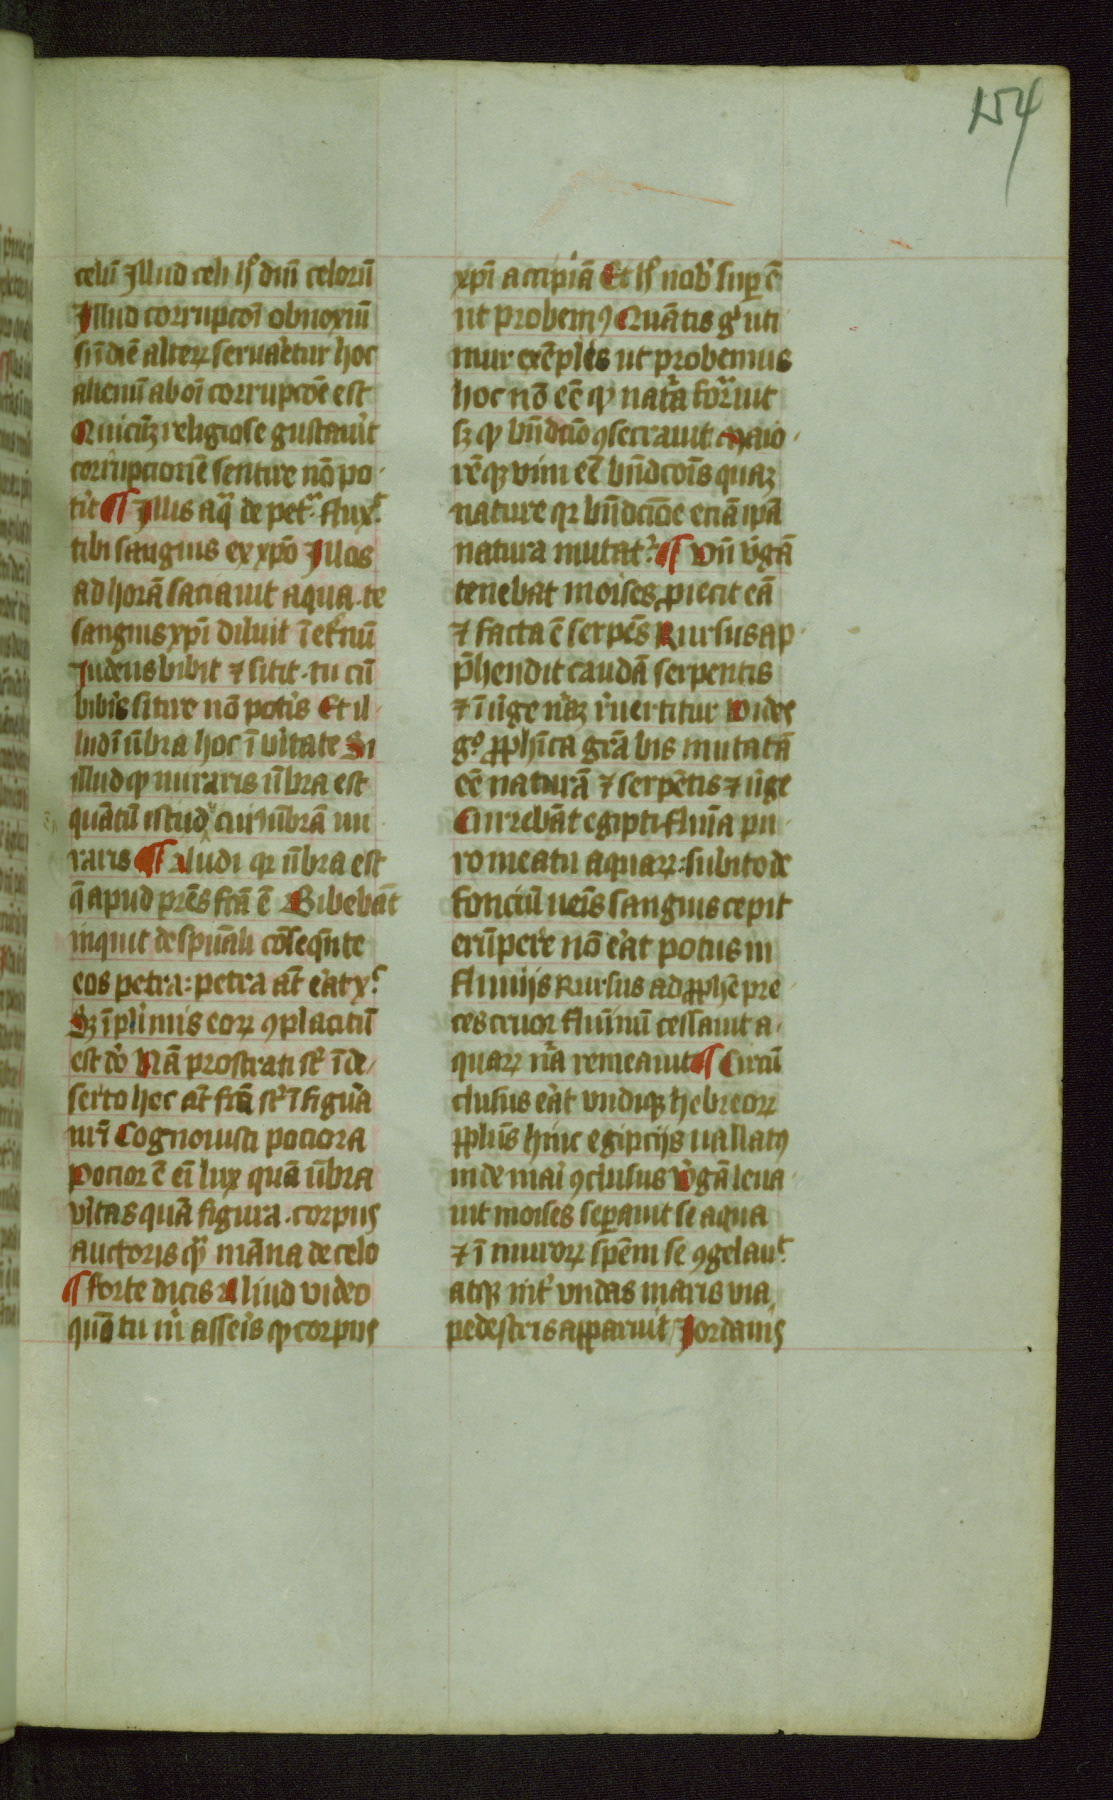 154
celū Illud celi hͦ dnī celorū
Illud corrupcōi obnoxiū
si ī diē alterꝝ seruaretur hoc
alienū ab oī corrupcōe est
Quicūqꝫ religiose gustauīt
corrupcionē sentire nō po
tit ¶ Illis aq̄ de petra flux.ͭ
tibi sanguis ex xpo Illos
ad horā saciauit aqua. te
sanguis xpī diluit ī etͨnū
Iudeus bibit ⁊ sitit. tu cū
bibͥs sitire nō potis Et il
lud ī ūbra hoc ī vͥtate Si
illud qꝫ miraris ūbra est
quātū istud cuiꝰ ūbrā mi
raris ¶ Audi qꝛ ūbra est
q̄ apud prēs fcā ē Bibebāt
inquit de spūali cōseqn̄te
eos petra: petra aūt erat xͨ
Sꝫ ī plimis eorꝝ ꝯplacitū
est dō Nā prostrati st̄ ī de
serto hec aūt fcā st̄ ī figuͣa
nrī Cognouisti pociora
Pocior ē eī lux quā ūbra
vͥtas quā figura. corpus
auctoris qͣꝫ māna de celo
¶ forte dicis Aliud video
quō tu mͥ asserͥs qꝫ corpus
xpī accipiā Et hͦ nobͥ suꝑ ē
ut probemꝰ Quātis gͥ uti
mur exēplis ut probemus
hoc nō eē qꝫ natͣa forͣuit
sꝫ qꝫ bn̄dcīo ꝯsecrauit Maio
rēqꝫ vim eē bn̄dcōis quaꝫ
nature qꝛ bn̄dcīōe eciā ipā
natura mutat.ͬ ¶ Vn̄ vͥgā
tenebat moises ꝓiecit eā
⁊ facta ē serpēs Rursus ap
p̄hendit caudā serpentis
⁊ ī vͥge nͣaꝫ rͥuertitur Vides
gͦ ꝓphīca grā bis mutatā
eē naturā ⁊ serpētis ⁊ vͥge
Currebāt egipti flūīa pu
ro meatu aquarꝝ: subito de
fonciū ueīs sanguis cepit
erūpere nō erͣat potus in
fluuiis Rursus ad ꝓphē pre
ces cruor fluīnū cessauit a
quarꝝ nͣa remeauit ¶ Circū
clusus erͣat vndiqꝫ hebreorꝝ
pplūs hinc egipciis uallatꝰ
inde mari ꝯclusus vͥgā leua
uit moises seꝑauit se aqua
⁊ ī murorꝝ spēm se ꝯgelauͭ
atqꝫ intͥ vndas maris via
pedestris apparuit Iordanis